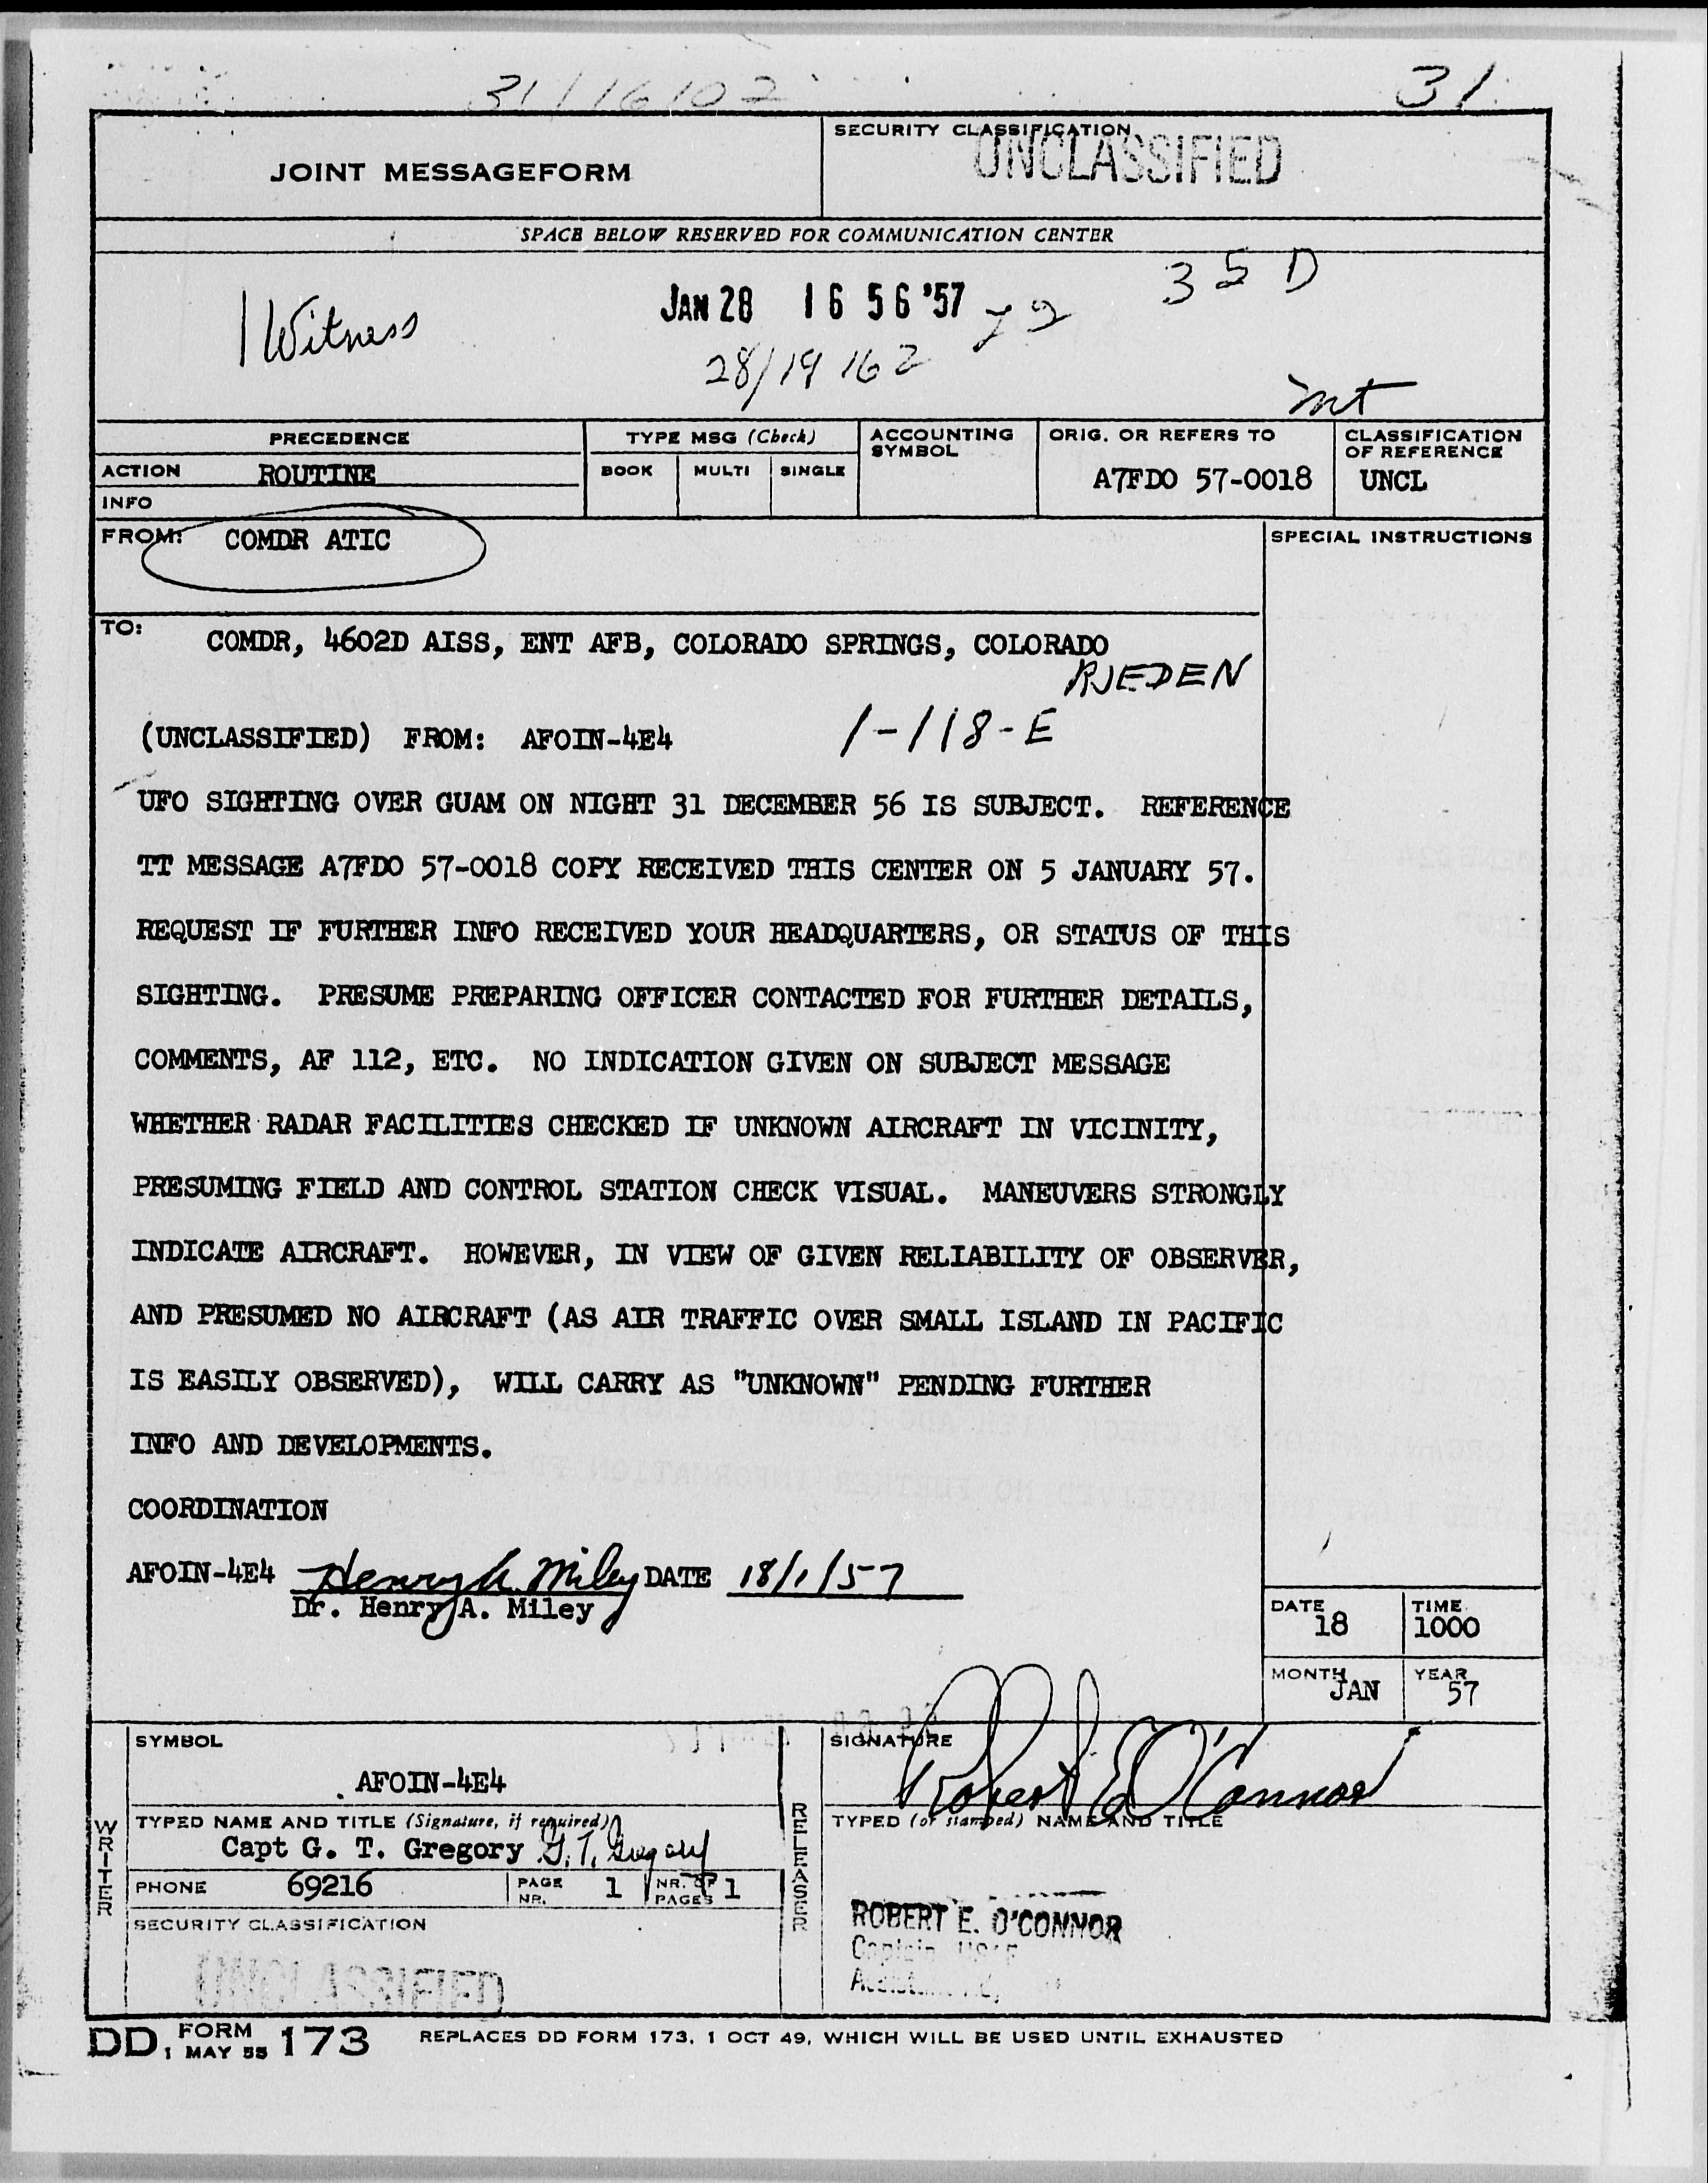 31/1610Z
31
JOINT MESSAGEFORM
SECURITY CLASSIFICATION
UNCLASSIFIED
SPACE BELOW RESERVED FOR COMMUNICATION CENTER
1 Witness
JAN 28 16 56 '57
35D
28/1916Z
PRECEDENCE
TYPE MSG (Check)
ACCOUNTING SYMBOL
ORIG. OR REFERS TO
CLASSIFICATION OF REFERENCE
ACTION ROUTINE
BOOK MULTI SINGLE
A7FDO 57-0018
UNCL
INFO
FROM: COMDR ATIC
SPECIAL INSTRUCTIONS
TO: COMDR, 4602D AISS, ENT AFB, COLORADO SPRINGS, COLORADO
RJEDEN
(UNCLASSIFIED) FROM: AFOIN-4E4
1-118-E
UFO SIGHTING OVER GUAM ON NIGHT 31 DECEMBER 56 IS SUBJECT. REFERENCE
TT MESSAGE A7FDO 57-0018 COPY RECEIVED THIS CENTER ON 5 JANUARY 57.
REQUEST IF FURTHER INFO RECEIVED YOUR HEADQUARTERS, OR STATUS OF THIS
SIGHTING. PRESUME PREPARING OFFICER CONTACTED FOR FURTHER DETAILS,
COMMENTS, AF 112, ETC. NO INDICATION GIVEN ON SUBJECT MESSAGE
WHETHER RADAR FACILITIES CHECKED IF UNKNOWN AIRCRAFT IN VICINITY,
PRESUMING FIELD AND CONTROL STATION CHECK VISUAL. MANEUVERS STRONGLY
INDICATE AIRCRAFT. HOWEVER, IN VIEW OF GIVEN RELIABILITY OF OBSERVER,
AND PRESUMED NO AIRCRAFT (AS AIR TRAFFIC OVER SMALL ISLAND IN PACIFIC
IS EASILY OBSERVED), WILL CARRY AS "UNKNOWN" PENDING FURTHER
INFO AND DEVELOPMENTS.
COORDINATION
AFOIN-4E4 Henry A. Miley DATE 18/1/57
Dr. Henry A. Miley
DATE 18
TIME 1000
MONTH JAN
YEAR 57
WRITER
SYMBOL
AFOIN-4E4
TYPED NAME AND TITLE (Signature, if required)
Capt G. T. Gregory G. T. Gregory
PHONE 69216
PAGE NR. 1
NR. OF PAGES 1
SECURITY CLASSIFICATION
UNCLASSIFIED
RELEASER
SIGNATURE
Robert E O'Connor
TYPED (or stamped) NAME AND TITLE
ROBERT E. O'CONNOR
Captain USAF
DD FORM 173
1 MAY 55
REPLACES DD FORM 173, 1 OCT 49, WHICH WILL BE USED UNTIL EXHAUSTED